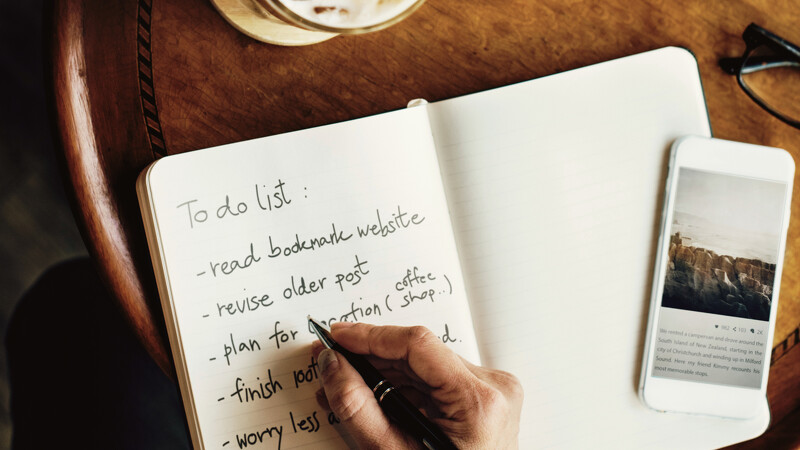 To do list :
- read bookmark website
- revise older post
- plan for location ( coffee shop.. )
- finish
- worry less
We rented a campervan and drove around the
South Island of New Zealand, starting in the
city of Christchurch and winding up in Milford
Sound. Here my friend Kimmy recounts his
most memorable stops.